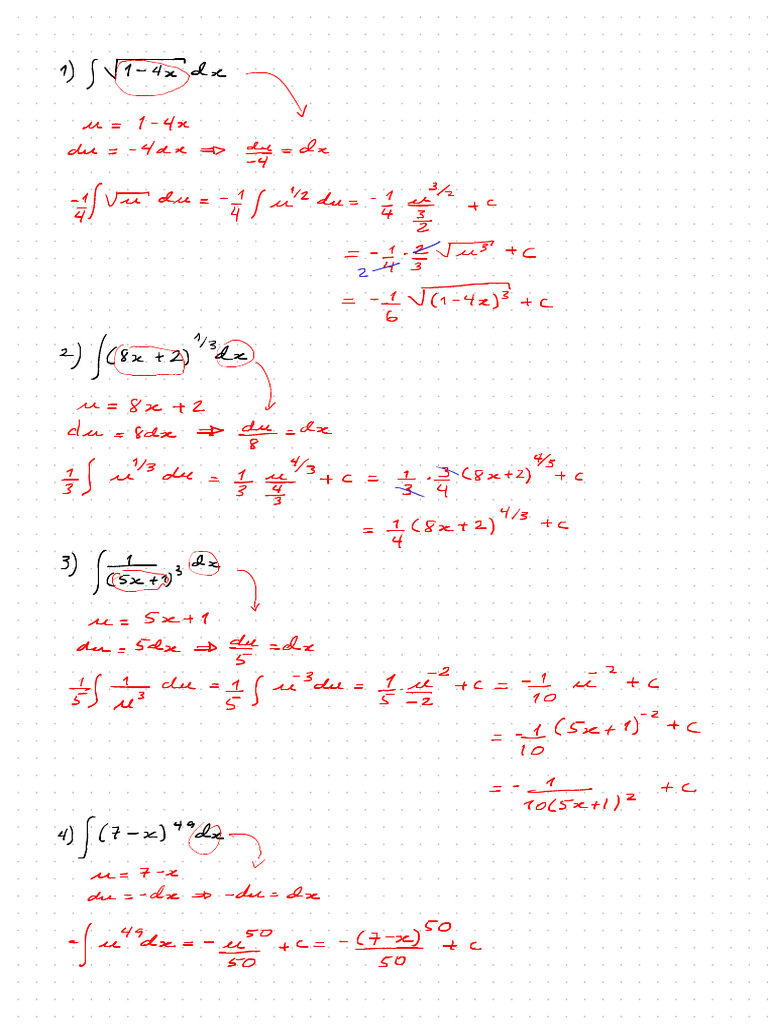 1) ∫ √(1-4x) dx
u = 1-4x
du = -4dx ⇒ du/-4 = dx
-1/4 ∫ √u du = -1/4 ∫ u^1/2 du = -1/4 u^3/2 / 3/2 + c
= -1/4 · 2/3 √u³ + c
2
= -1/6 √(1-4x)³ + c
2) ∫ (8x+2)^1/3 dx
u = 8x+2
du = 8dx ⇒ du/8 = dx
1/3 ∫ u^1/3 du = 1/3 u^4/3 / 4/3 + c = 1/3 · 3/4 (8x+2)^4/3 + c
= 1/4 (8x+2)^4/3 + c
3) ∫ 1/(5x+1)³ dx
u = 5x+1
du = 5dx ⇒ du/5 = dx
1/5 ∫ 1/u³ du = 1/5 ∫ u^-3 du = 1/5 · u^-2/-2 + c = -1/10 u^-2 + c
= -1/10 (5x+1)^-2 + c
= - 1/10(5x+1)² + c
4) ∫ (7-x)^49 dx
u = 7-x
du = -dx ⇒ -du = dx
-∫ u^49 dx = - u^50/50 + c = -(7-x)^50/50 + c